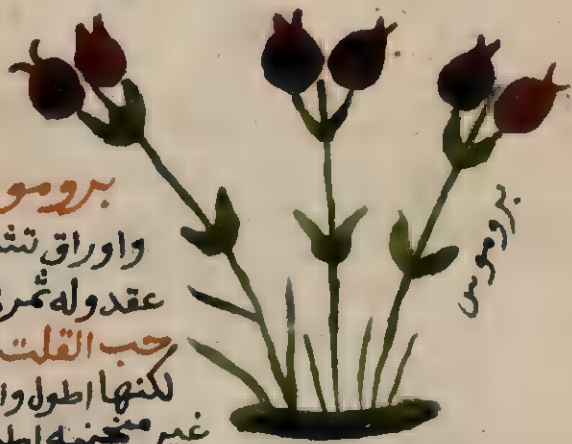 برومو
واوراق تش
عقد وله ثمرة
حب القلت
لكنها اطول وا
غير منحنيه اطو
بروموس